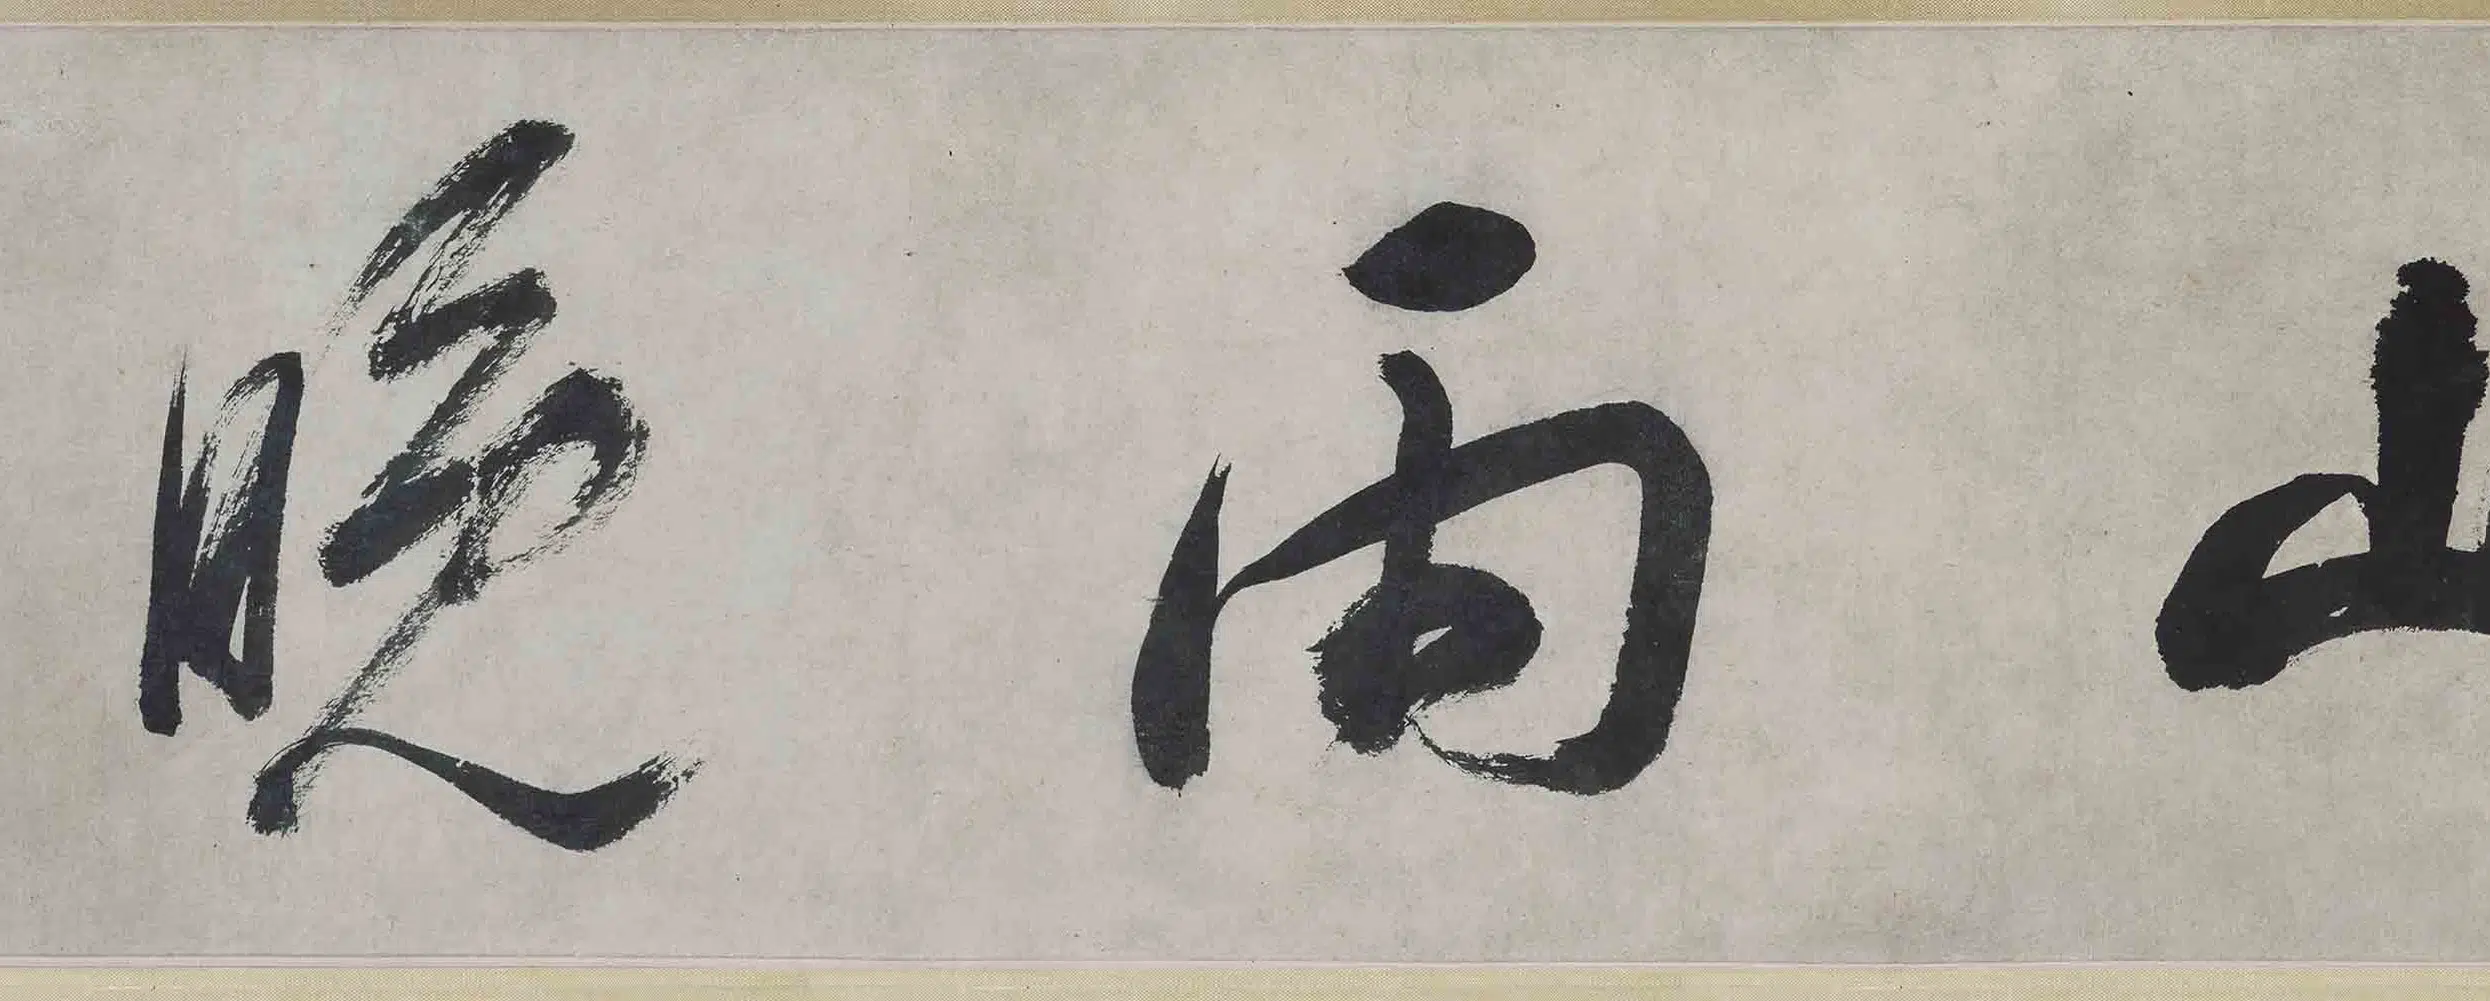 山雨晚